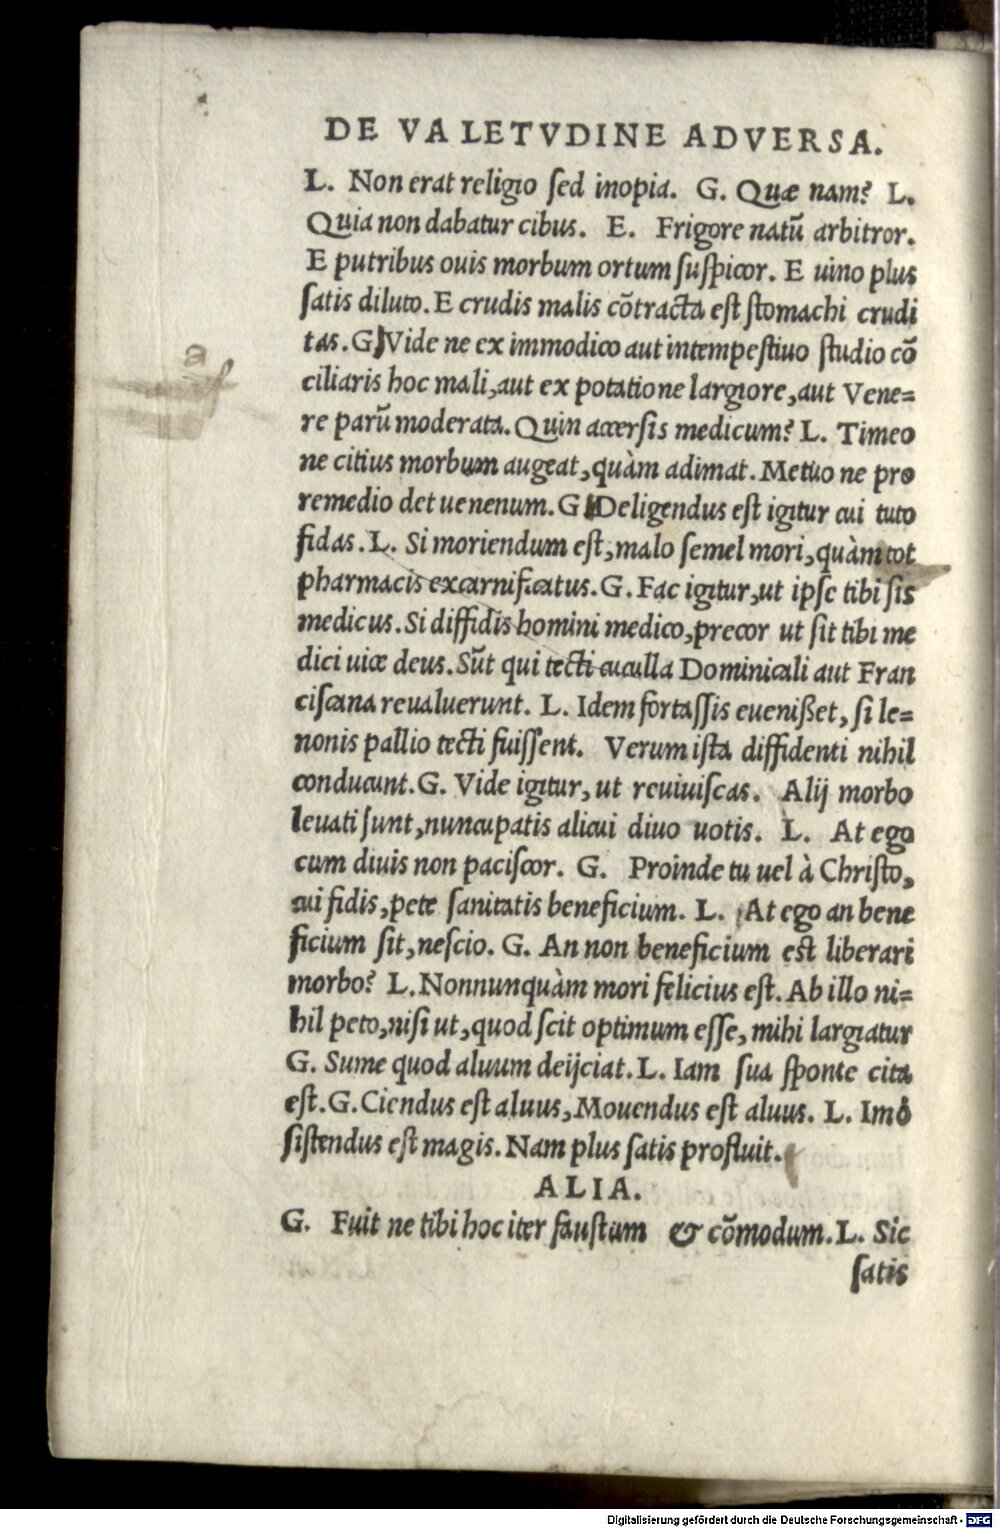 DE VALETVDINE ADVERSA.
L. Non erat religio sed inopia. G. Quæ nam? L.
Quia non dabatur cibus. E. Frigore natũ arbitror.
E putribus ouis morbum ortum suspicor. E uino plus
satis diluto. E crudis malis cõtracta est stomachi crudi
tas. G. Vide ne ex immodico aut intempestiuo studio cõ
ciliaris hoc mali, aut ex potatione largiore, aut Vene=
re parũ moderata. Quin accersis medicum? L. Timeo
ne citius morbum augeat, quàm adimat. Metuo ne pro
remedio det uenenum. G. Deligendus est igitur cui tuto
fidas. L. Si moriendum est, malo semel mori, quàm tot
pharmacis excarnificatus. G. Fac igitur, ut ipse tibi sis
medicus. Si diffidis homini medico, precor ut sit tibi me
dici uice deus. Sũt qui tecti cuculla Dominicali aut Fran
ciscana reualuerunt. L. Idem fortassis eueniβet, si le=
nonis pallio tecti fuissent. Verum ista diffidenti nihil
conducunt. G. Vide igitur, ut reuiuiscas. Alij morbo
leuati sunt, nuncupatis alicui diuo uotis. L. At ego
cum diuis non paciscor. G. Proinde tu uel à Christo,
cui fidis, pete sanitatis beneficium. L. At ego an bene
ficium sit, nescio. G. An non beneficium est liberari
morbo? L. Nonnunquàm mori felicius est. Ab illo ni=
hil peto, nisi ut, quod scit optimum esse, mihi largiatur
G. Sume quod aluum deijciat. L. Iam sua sponte cita
est. G. Ciendus est aluus, Mouendus est aluus. L. Imò
sistendus est magis. Nam plus satis profluit.
ALIA.
G. Fuit ne tibi hoc iter faustum & cõmodum. L. Sic
satis
a
Digitalisierung gefördert durch die Deutsche Forschungsgemeinschaft - DFG